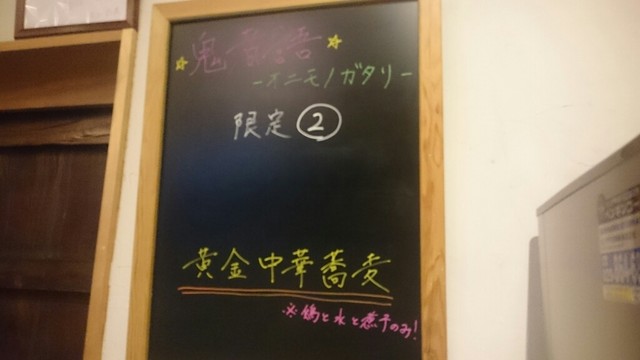 鬼物語
－オニモノガタリ－
限定②
黄金中華蕎麦
※鶏と水と煮干のみ!